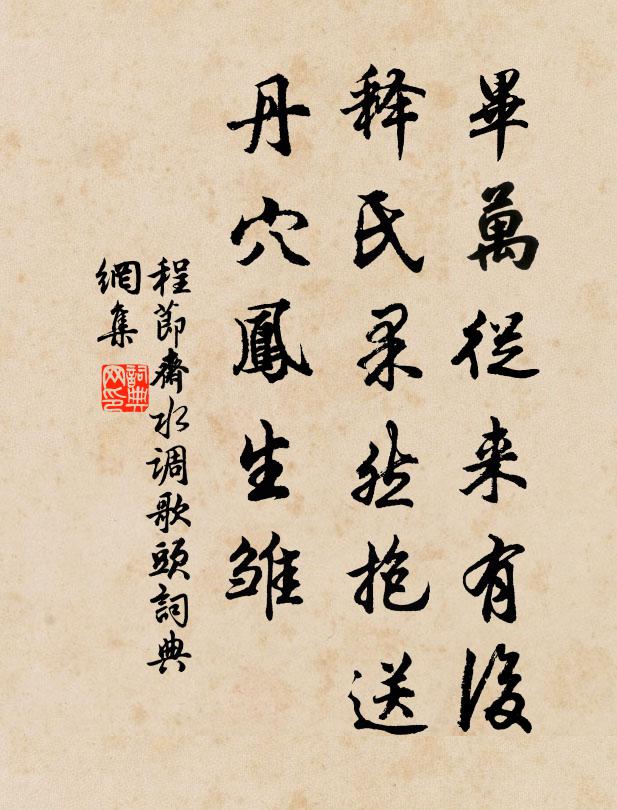 畢萬從来有後
释氏果然抱送
丹穴鳳生雏
程節齋水调歌頭詞典
網集
詞典
网印